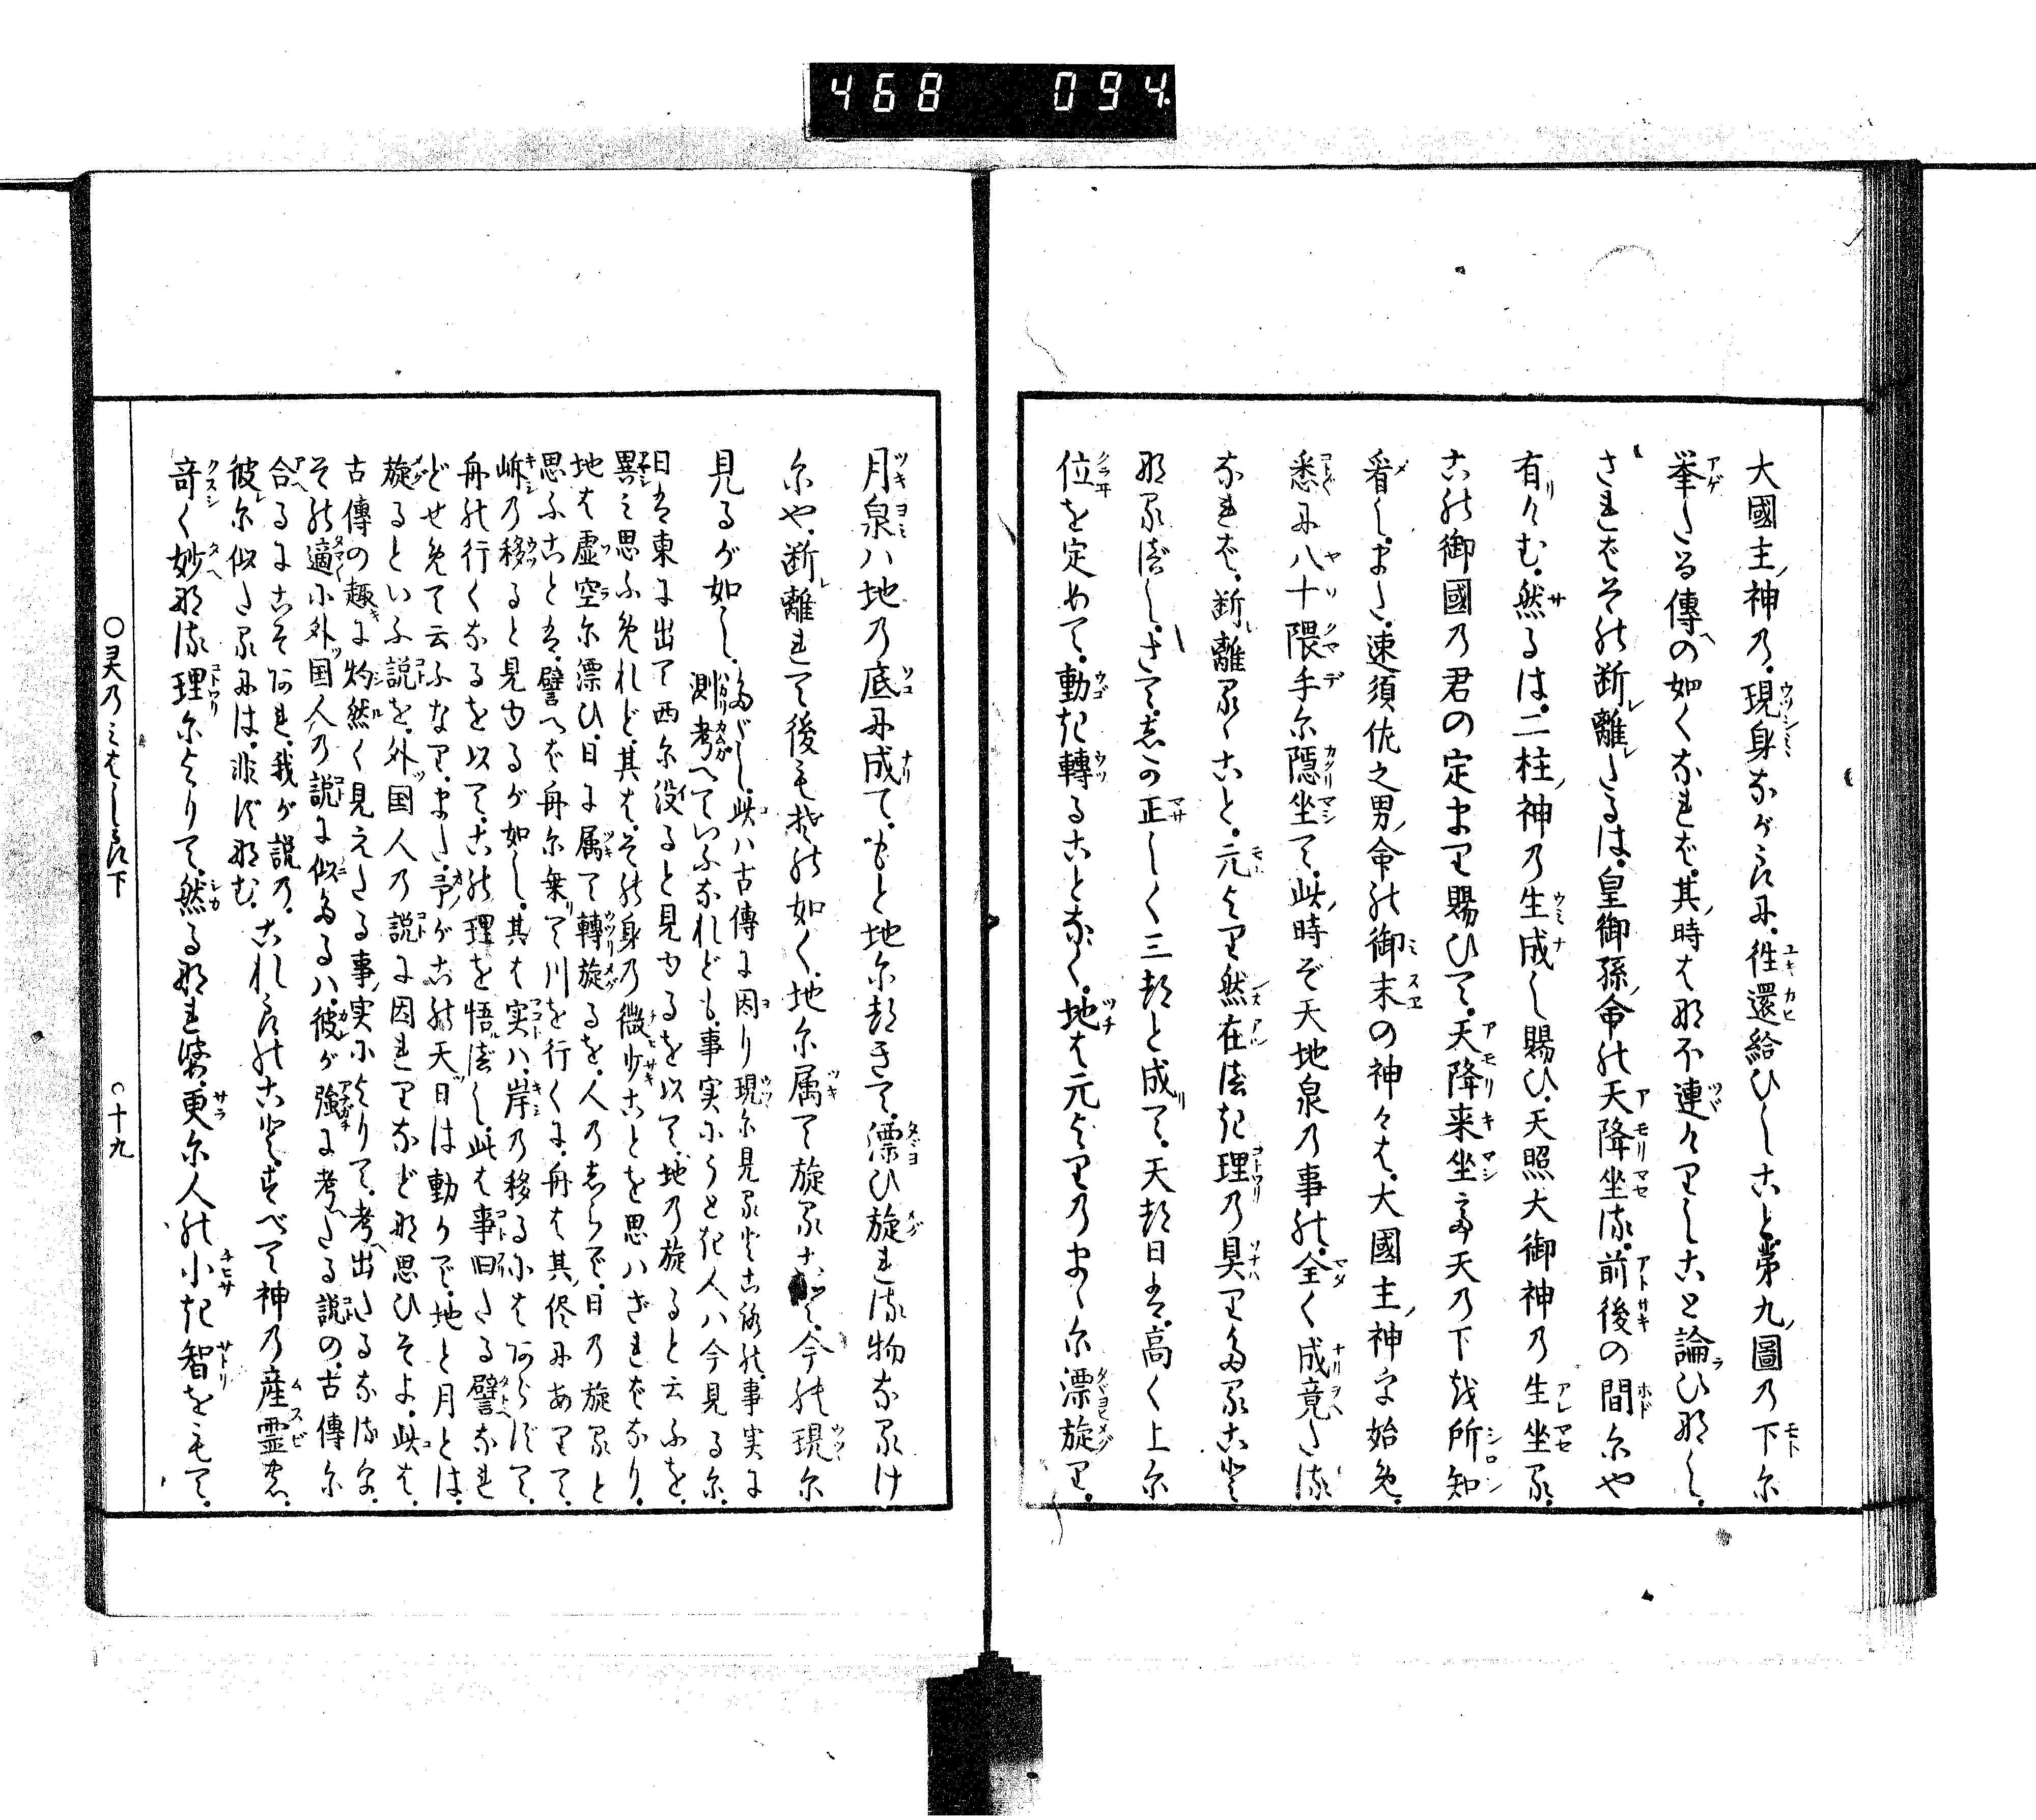 468 094
大國主ノ神乃。現身ながらに。徃還給ひしこと。第九ノ圖乃下尓
挙たる傳の如くなれば。其ノ時は那不連々りしこと論ひ那し。
さればその断離たるは。皇御孫ノ命の天降坐る。前後の間尓や
有けむ。然るは。二柱ノ神乃生成し賜ひ。天照大御神乃生坐る。
この御國乃君の定まり賜ひて。天降来坐て天乃下を所知
看し。また速須佐之男ノ命の御末の神々は。大國主ノ神を始め。
悉に八十隈手尓隠坐て。此ノ時ぞ天地泉乃事の。全く成竟たる
なれば。断離るゝこと。元より然在べき理乃具りたること
那るべし。さて。しか正しく三つと成て。天つ日は。高く上尓
位を定めて。動き轉ることなく。地は元よりのまゝ尓漂旋り。
月泉ハ地乃底に成て。もと地尓つきて。漂ひ旋れる物なるけ
尓や。断離れて後も其の如く。地尓属て旋ること。今の現尓
見るが如し。
但し。此ハ古傳に因り現尓見ることの。事実に
測考へていふなれども。事実にうとき人ハ今見る尓。
日は東に出て西尓没ると見ゆるを以て。地乃旋ると云ふを。
異み思ふめれど。其は。その身乃微少ことを思ハざればなり。
地は虚空尓漂ひ。日に属て轉旋るを。人乃しらで。日乃旋ると
思ふことは。譬へば舟尓乗て川を行くに。舟は其ノ侭にありて。
岸乃移ると見ゆるが如し。其は実ハ。岸乃移るにはあらずて。
舟の行くなるを以て。この理を悟べし。此は事旧たる譬なれ
どせめて云ふなり。また。予がこの天つ日は動かで。地と月とは。
旋るといふ説を。外国人乃説に因れりなど那思ひそよ。此は。
古傳の趣に灼然く見えたる事実によりて。考へ出たるなるを。
その適に外国人乃説に似たるハ。彼が強に考へたる説の。古傳尓
合るにこそあれ。我が説乃。
彼尓似たるには。非ず那む。
これらのこと。すべて神乃産霊の。
奇く妙那る理尓よりて。然る那れば。更尓人の小き智をもて。
〇灵乃みはしら下
〇十九